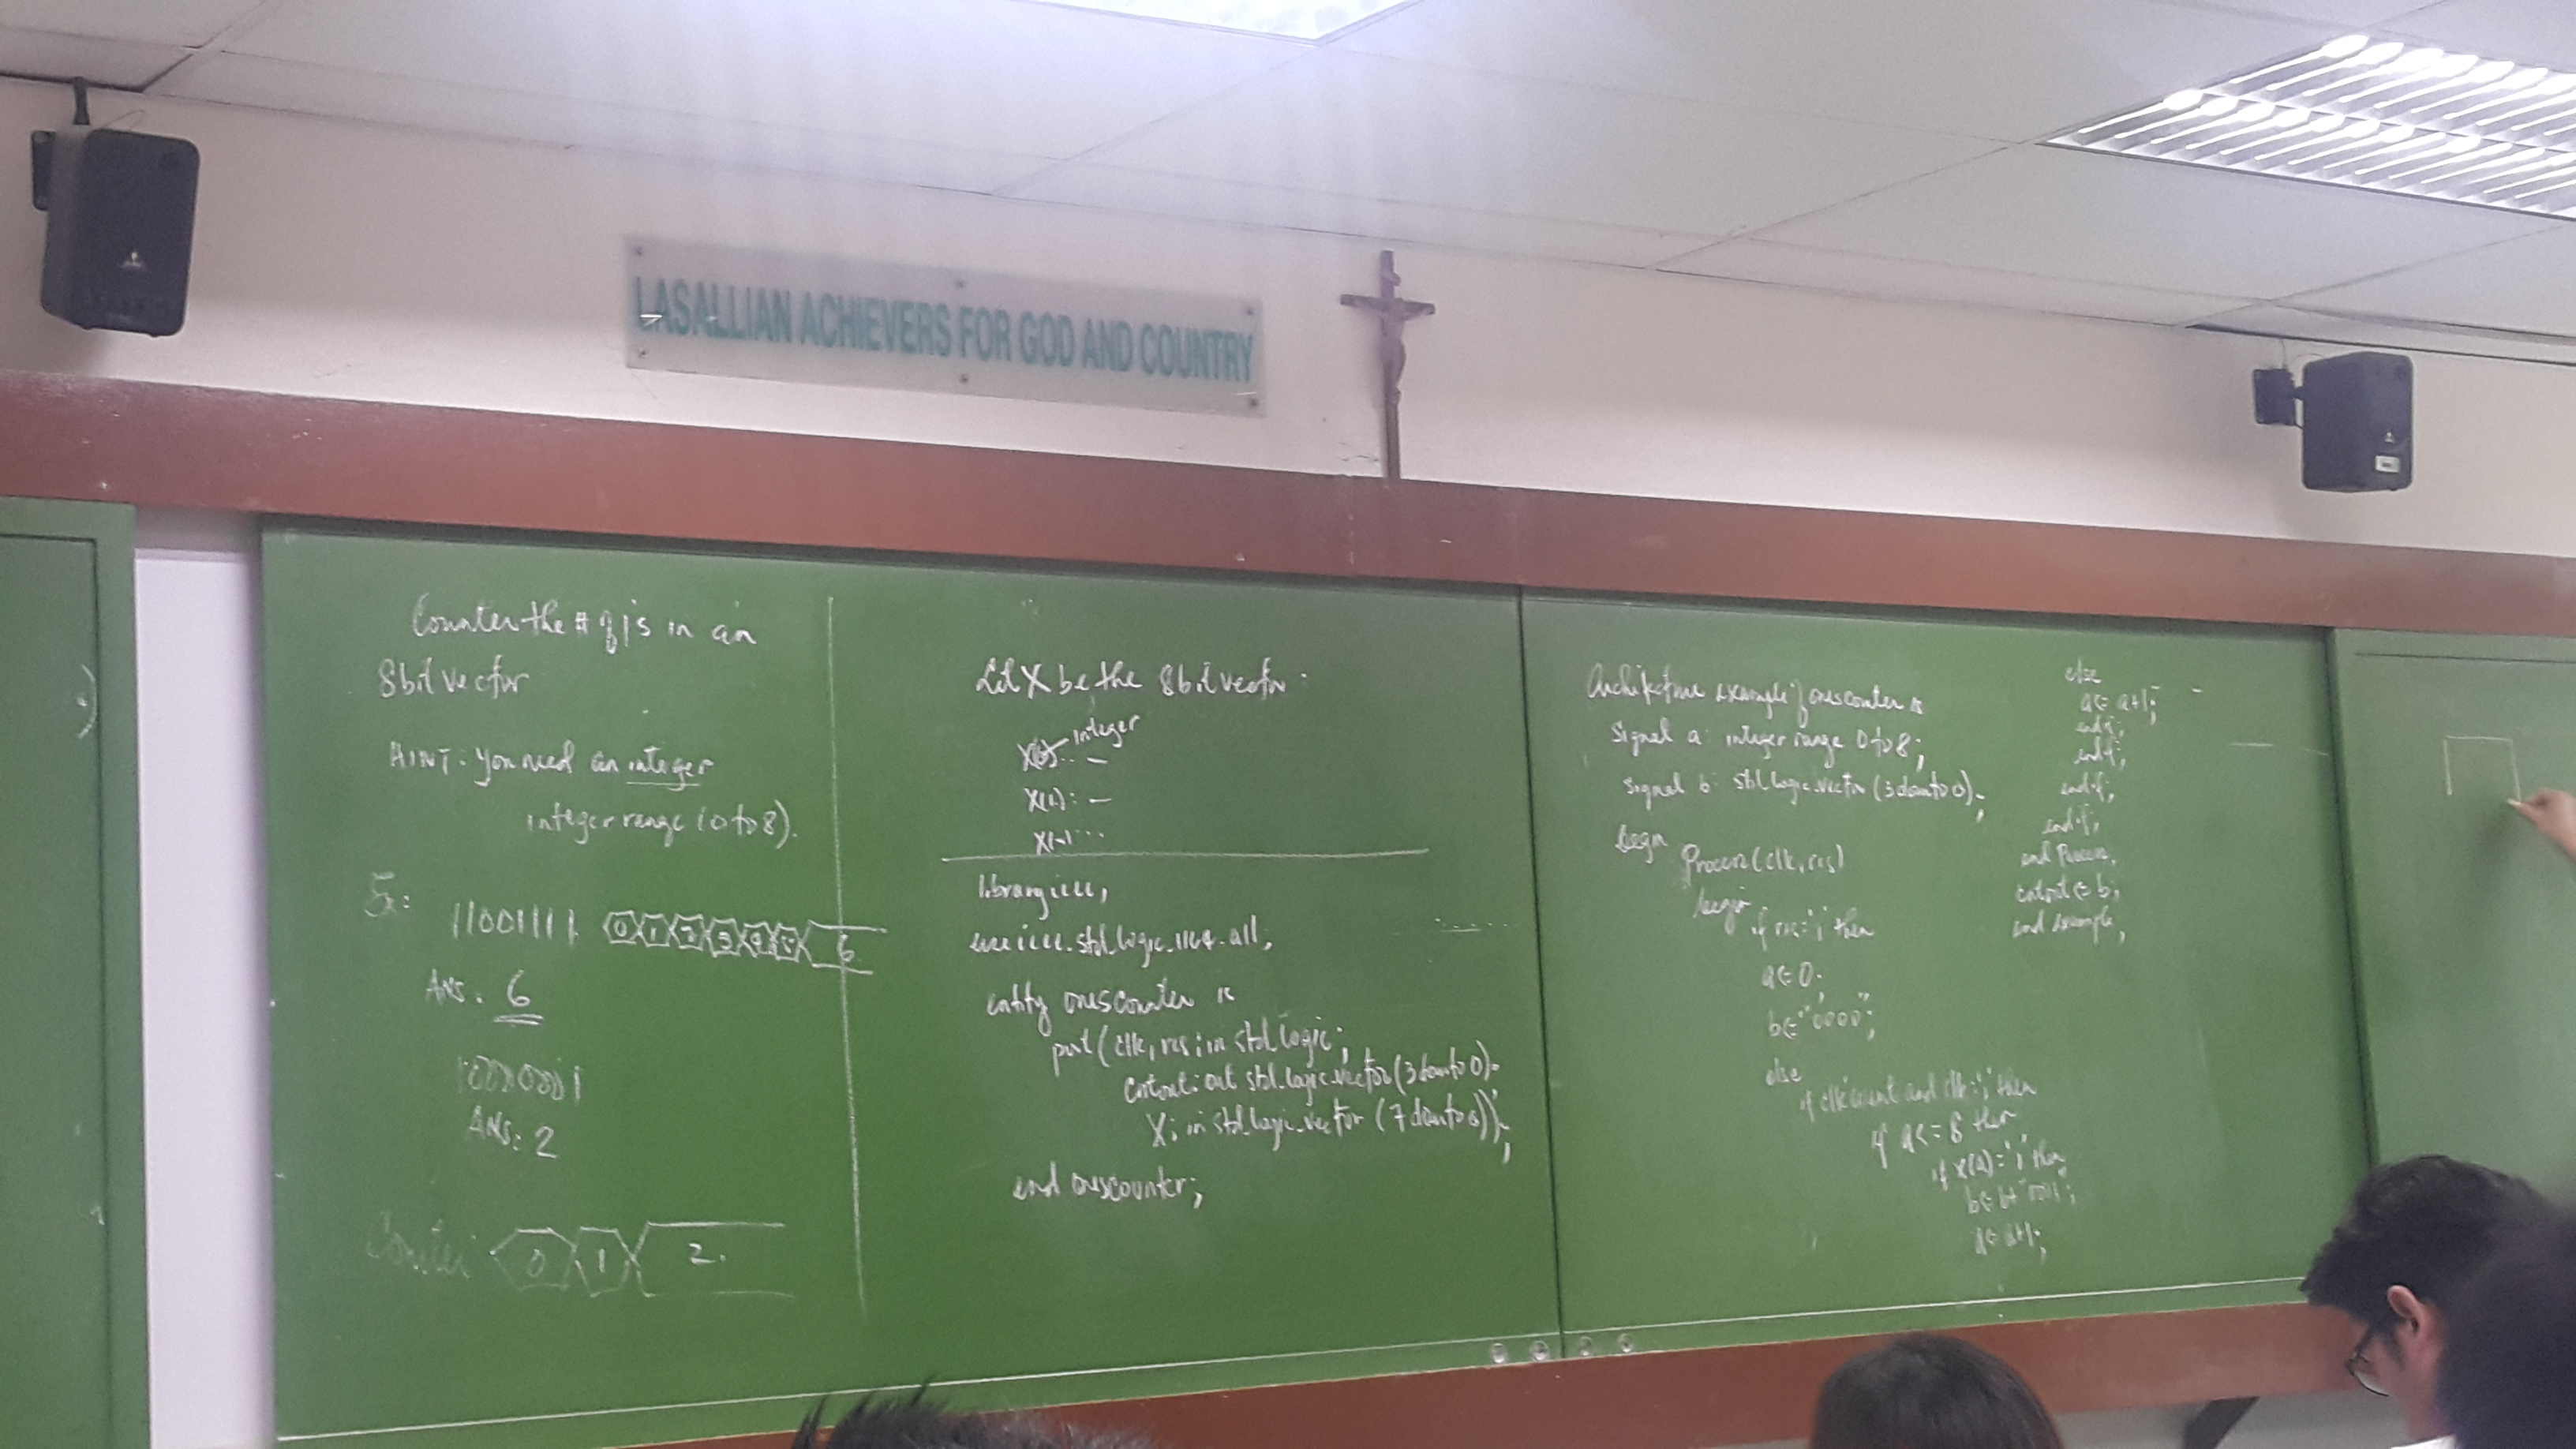 LASALLIAN ACHIEVERS FOR GOD AND COUNTRY
Counter the # of 1's in an
8 bit vector
HINT: You need an integer
integer range (0 to 8).
Ex:
11001111 0 1 2 3 4 5 6
Ans: 6
10000001
Ans: 2
Counter 0 1 2.
Let X be the 8 bit vector.
X(0): — integer
X(1): —
library ieee;
use ieee.std_logic_1164.all;
entity onescounter is
port (clk, res: in std_logic;
out std_logic_vector (3 downto 0);
X: in std_logic_vector (7 downto 0));
end onescounter;
Architecture example of onescounter is
Signal a: integer range 0 to 8;
Signal b: std_logic_vector (3 downto 0);
begin
Process (clk, res)
begin
if res='1' then
a<= 0;
b<= "0000";
else
if clk'event and clk='1' then
if a<=8 then
if x(a)='1' then
b<= b+"0001";
a<= a+1;
else
a<= a+1;
end if;
end if;
end if;
end if;
end Process;
b;
end example;